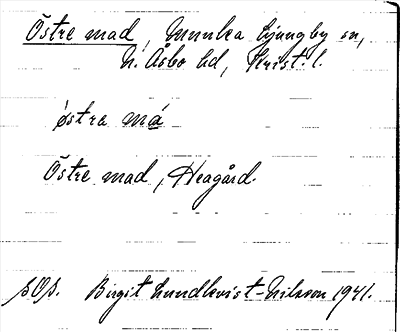 Östre mad, Munka Ljungby sn,
N. Åsbo hd, Krist. l.
östra má
Östre mad, Heagård.
sOp. Birgit Lundkvist-Nilsson 1941.